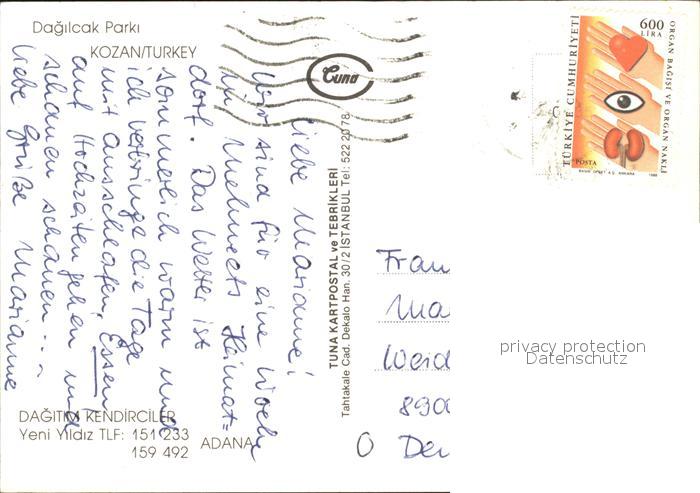 Dağılcak Parkı
KOZAN/TURKEY
Liebe Marianne!
Wir sind für eine Woche
in Mehmeds Heimat=
dorf. Das Wetter ist
sommerlich warm und
ich verbringe die Tage
mit ausschlafen, Essen,
auf Hochzeiten gehen und
schauen schauen...
liebe Grüße Marianne
DAĞITIM KENDİRCİLER
Yeni Yıldız TLF: 151 233
159 492 ADANA
Tuna
TUNA KARTPOSTAL ve TEBRİKLERİ
Tahtakale Cad. Dekalo Han. 30/2 İSTANBUL Tel: 522 20 78
600
LİRA
TÜRKİYE CUMHURİYETİ
POSTA
ORGAN BAĞIŞI VE ORGAN NAKLİ
1988
Frau
Ma
Weid
890
Deu
privacy protection
Datenschutz